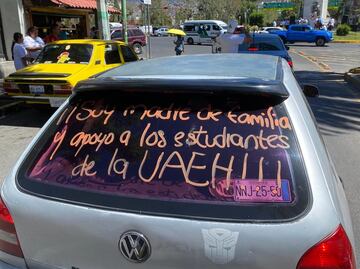 ¡¡Soy madre de familia
y apoyo a los estudiantes
de la UAEH!!!